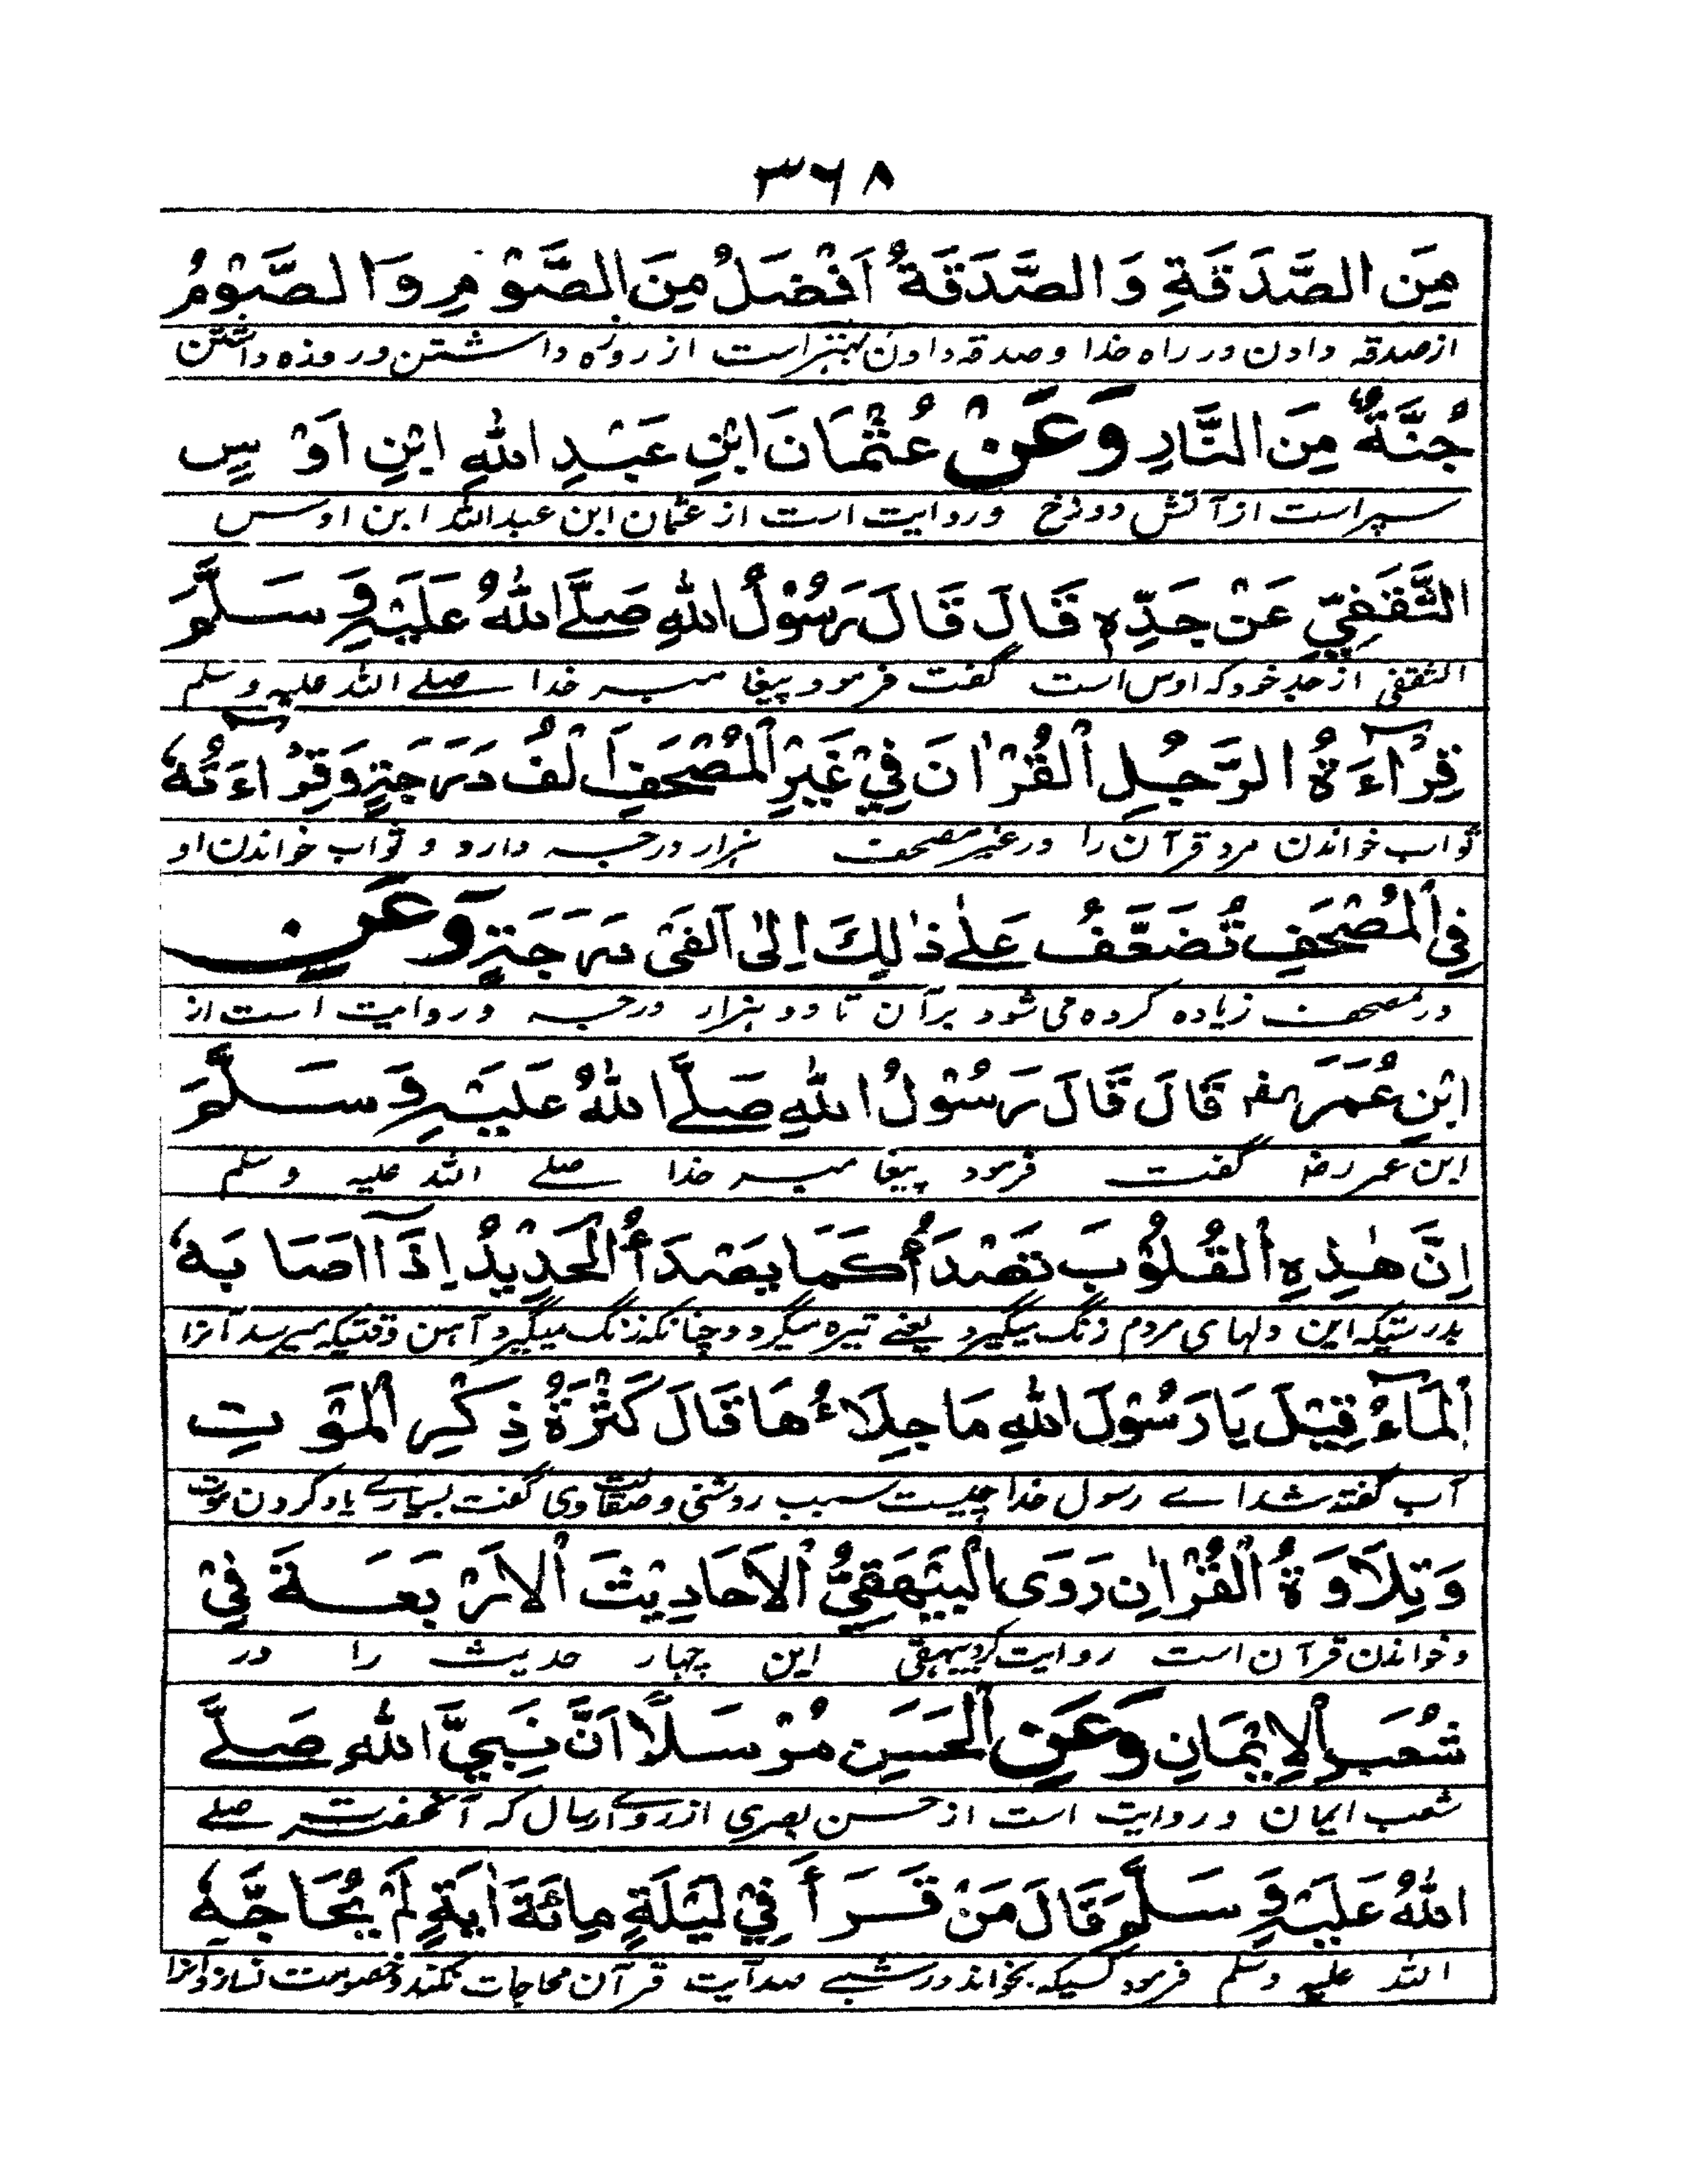 ۳۶۸
مِنَ الصَّدَقَةِ وَالصَّدَقَةُ اَفْضَلُ مِنَ الصَّوْمِ وَالصَّوْمُ
از صدقه دادن در راه خدا و صدقه دادن بهتر است از روزه داشتن و روزه داشتن
جُنَّةٌ مِنَ النَّارِ وَعَنْ عُثْمَانَ ابْنِ عَبْدِ اللهِ ابْنِ اَوْسٍ
سپر است از آتش دوزخ و روایت است از عثمان ابن عبدالله ابن اوس
الثَّقَفِيِّ عَنْ جَدِّهٖ قَالَ قَالَ رَسُوْلُ اللهِ صَلَّے اللهُ عَلَيْهِ وَسَلَّمَ
الثقفی از جد خود که اوس است گفت فرمود پیغامبر خدا صلے الله علیه وسلم
قِرْاءَةُ الرَّجُلِ الْقُرْاٰنَ فِيْ غَيْرِ الْمُصْحَفِ اَلْفُ دَرَجَةٍ وَقِرْاءَتُهٗ
ثواب خواندن مرد قرآن را در غیر مصحف هزار درجه دارد و ثواب خواندن او
فِي الْمُصْحَفِ تُضَعَّفُ عَلٰے ذٰلِكَ اِلٰى اَلْفَىْ دَرَجَةٍ وَعَنِ
در مصحف زیاده کرده می شود برآن تا دو هزار درجه و روایت است از
ابْنِ عُمَرَ رض قَالَ قَالَ رَسُوْلُ اللهِ صَلَّے اللهُ عَلَيْهِ وَسَلَّمَ
ابن عمر رض گفت فرمود پیغامبر خدا صلے الله علیه وسلم
اِنَّ هٰذِهِ الْقُلُوْبَ تَصْدَأُ كَمَا يَصْدَأُ الْحَدِيْدُ اِذَآ اَصَابَهٗ
بدرستیکه این دلهای مردم زنگ میگیرد یعنے تیره میگردد چنانکه زنگ میگیرد آهن وقتیکه میرسد آنرا
الْمَآءُ قِيْلَ يَا رَسُوْلَ اللهِ مَا جِلَاءُهَا قَالَ كَثْرَةُ ذِكْرِ الْمَوْتِ
آب گفته شد اے رسول خدا چیست سبب روشنی و صقالت وی گفت بسیارے یاد کردن موت
وَتِلَاوَةُ الْقُرْاٰنِ رَوَى الْبَيْهَقِيُّ الْاَحَادِيْثَ الْاَرْبَعَةَ فِيْ
و خواندن قرآن است روایت کرد بیهقی این چهار حدیث را در
شُعَبِ الْاِيْمَانِ وَعَنِ الْحَسَنِ مُرْسَلًا اَنَّ نَبِيَّ اللهِ صَلَّے
شعب ایمان و روایت است از حسن بصری از روے ارسال که آنحضرت صلے
اللهُ عَلَيْهِ وَسَلَّمَ قَالَ مَنْ قَرَأَ فِيْ لَيْلَةٍ مِائَةَ اٰيَةٍ لَمْ يُحَاجَّهٗ
الله علیه وسلم فرمود کسیکه بخواند در شبے صد آیت قرآن محاجات نکند و خصومت نسازد آنرا